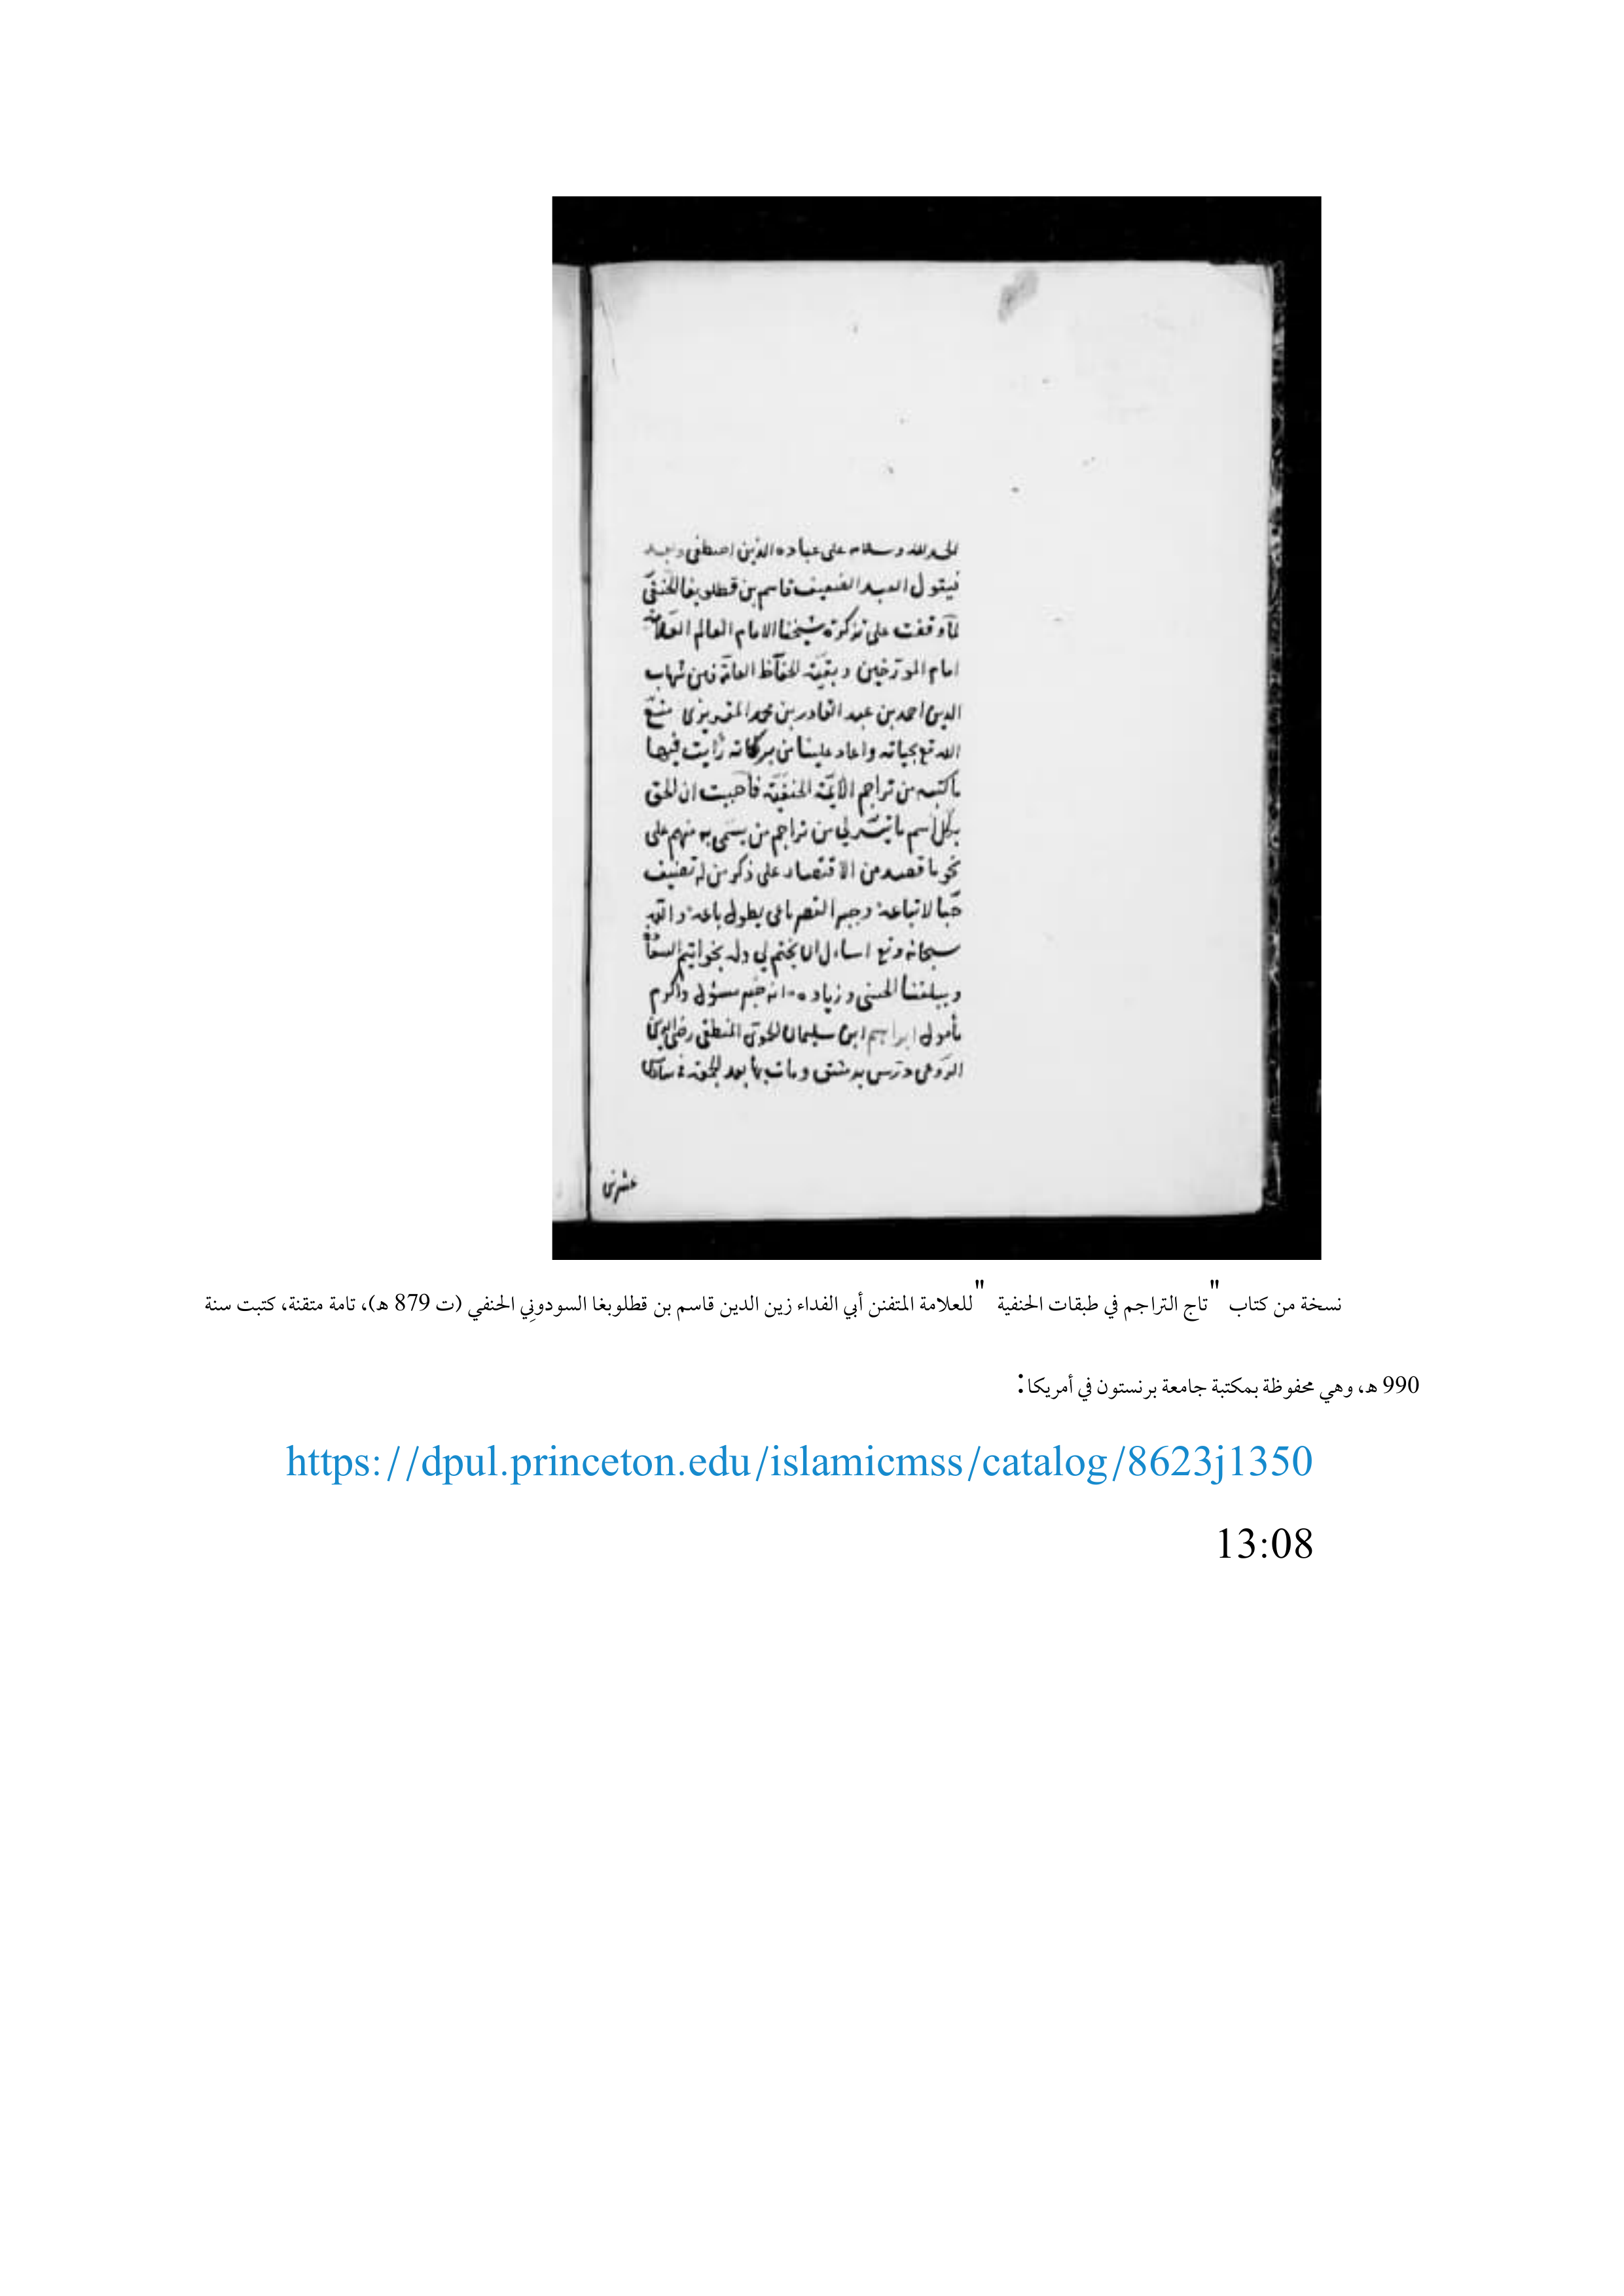 الحمد لله وسلام على عباده الذين اصطفى وبعد
فيقول العبد الضعيف قاسم بن قطلوبغا الحنفي
لما وقفت على تذكرة شيخنا الامام العالم العلامة
امام المورخين وبقية الحفاظ العارفين شهاب
الدين احمد بن عبد القادر بن محمد المقريزي متع
الله تع بحياته واعاد علينا من بركاته رايت فيها
ما كتبه من تراجم الائمة الحنفية فاحببت ان الحق
بكل اسم ما تيسر لي من تراجم من يسمى به منهم على
نحو ما قصد من الاقتصار على ذكر من له تصنيف
حبا لاتباعه وجبر القصر باعي بطول باعه والله
سبحانه وتع اسال ان يختم لي وله بخواتيم السعادة
ويبلغنا الحسنى وزيادة انه خير مسؤل واكرم
مأمول ابراهيم ابن سليمان الحموي المنطقي رضي الدين
الرومي درس بدمشق ومات بها بعد الحقه في سادس
عشرين
نسخة من كتاب "تاج التراجم في طبقات الحنفية "للعلامة المتفنن أبي الفداء زين الدين قاسم بن قطلوبغا السودوني الحنفي (ت 879 هـ)، تامة متقنة، كتبت سنة
990 هـ، وهي محفوظة بمكتبة جامعة برنستون في أمريكا:
https://dpul.princeton.edu/islamicmss/catalog/8623j1350
13:08